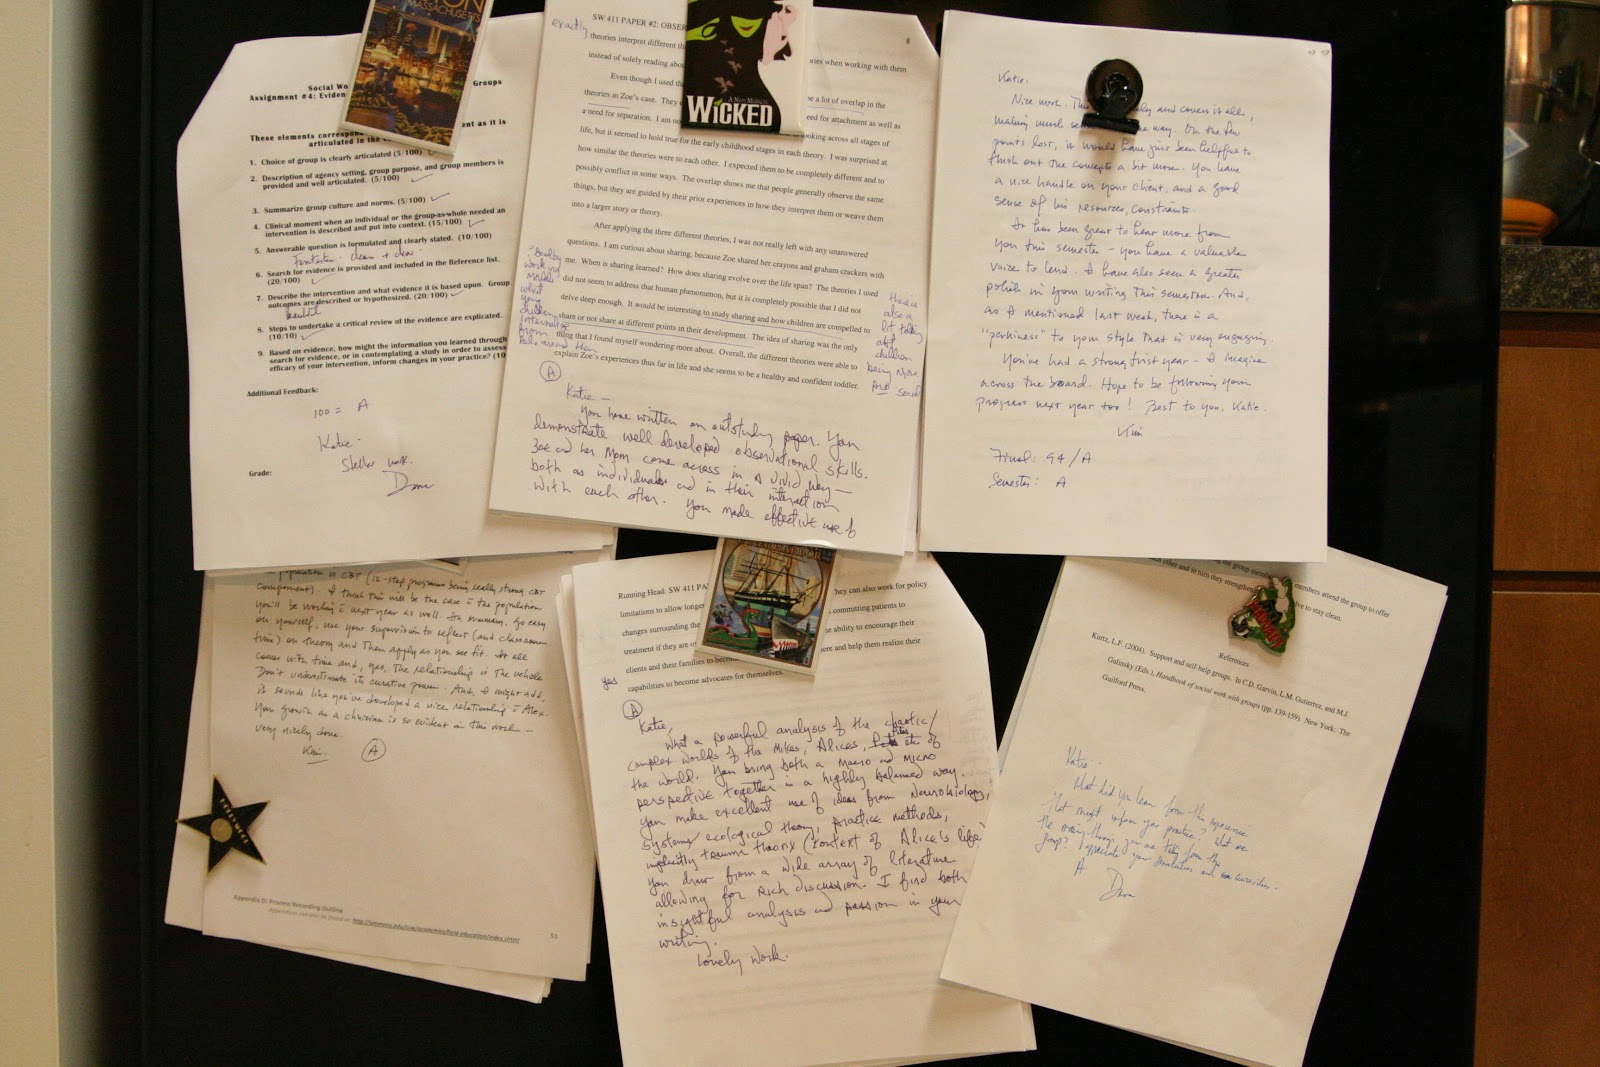 MASSACHUSETTS
Social Wo
Groups
Assignment #4: Eviden
These elements correspond
ent as it is
articulated in the
1. Choice of group is clearly articulated (5/100)
2. Description of agency setting, group purpose, and group members is
provided and well articulated. (5/100)
3. Summarize group culture and norms. (5/100)
4. Clinical moment when an individual or the group-as-whole needed an
intervention is described and put into context. (15/100)
5. Answerable question is formulated and clearly stated. (10/100)
clean + clear
6. Search for evidence is provided and included in the Reference list.
(20/100)
7. Describe the intervention and what evidence it is based upon. Group
outcomes are described or hypothesized. (20/100)
8. Steps to undertake a critical review of the evidence are explicated.
(10/10)
9. Based on evidence, how might the information you learned through
search for evidence, or in contemplating a study in order to assess
efficacy of your intervention, inform changes in your practice? (10
Additional Feedback:
100 = A
Katie-
Stellar work.
Grade:
exactly
SW 411 PAPER #2: OBSER
8
theories interpret different th
ories when working with them
instead of solely reading abou
Even though I used th
be a lot of overlap in the
theories in Zoe's case. They
need for attachment as well as
a need for separation. I am no
ooking across all stages of
life, but it seemed to hold true for the early childhood stages in each theory. I was surprised at
how similar the theories were to each other. I expected them to be completely different and to
possibly conflict in some ways. The overlap shows me that people generally observe the same
things, but they are guided by their prior experiences in how they interpret them or weave them
into a larger story or theory.
After applying the three different theories, I was not really left with any unanswered
questions. I am curious about sharing, because Zoe shared her crayons and graham crackers with
me. When is sharing learned? How does sharing evolve over the life span? The theories I used
did not seem to address that human phenomenon, but it is completely possible that I did not
delve deep enough. It would be interesting to study sharing and how children are compelled to
share or not share at different points in their development. The idea of sharing was the only
thing that I found myself wondering more about. Overall, the different theories were able to
explain Zoe's experiences thus far in life and she seems to be a healthy and confident toddler.
Bowlby
work
what
young
children
internalize
from
There is
also a
lit, talking
abt
children
being more
social
A
Katie-
You have written an outstanding paper. You
demonstrate well developed observational skills.
Zoe and her Mom come across in a vivid way-
both as individuals and in their interaction
with each other. You made effective use of
A NEW MUSICAL
WICKED
Katie.
Nice work. This
and covers it all,
making much sense
the way. On the few
points lost, it would have just been helpful to
flesh out the concepts a bit more. You have
a nice handle on your client, and a good
sense of his resources, constraints.
It has been great to hear more from
you this semester - you have a valuable
voice to lend. I have also seen a greater
polish in your writing this semester. And,
as I mentioned last week, there is a
"perkiness" to your style that is very engaging.
You've had a strong first year - I imagine
across the board. Hope to be following your
progress next year too! Best to you, Katie.
Kim
Final: 94/A
Semester: A
population is CBT (12-step programs being really strong CBT
component). I think this will be the case c the population
you'll be working c next year as well. In summary, go easy
on yourself, use your supervision to reflect (and classroom
time) on theory and then apply as you see fit. It all
comes with time and, yes, the relationship is the vehicle.
Don't underestimate its curative power. And, I might add,
it sounds like you've developed a nice relationship c Alex.
Your growth as a clinician is so evident in this work -
very nicely done.
Kim
A
Appendix D: Process Recording Outline
53
Running Head: SW 411 PAP
They can also work for policy
limitations to allow longer
committing patients to
changes surrounding the
the ability to encourage their
treatment if they are o
here and help them realize their
clients and their families to becom
capabilities to become advocates for themselves.
yes
A
Katie,
What a powerful analysis of the chaotic/
complex worlds of the Mikes, Alices, etc of
the world. You bring both a macro and micro
perspective together in a highly balanced way.
You make excellent use of ideas from neurobiology,
systems/ecological theory, practice methods,
implicitly trauma theory (context of Alice's life)
You draw from a wide array of literature
allowing for rich discussion. I find both
insightful analysis and passion in your
writing.
Lovely Work.
ng the group mem
embers attend the group to offer
other and in turn they strengthen
ive to stay clean.
References
Kurtz, L.F. (2004). Support and self-help groups. In C.D. Garvin, L.M. Gutierrez, and M.J.
Galinsky (Eds.), Handbook of social work with groups (pp. 139-159). New York: The
Guilford Press.
Katie-
What did you learn from this experience
that might inform your practice? What are
the main things you are taking from this
group? I appreciate your
and
A